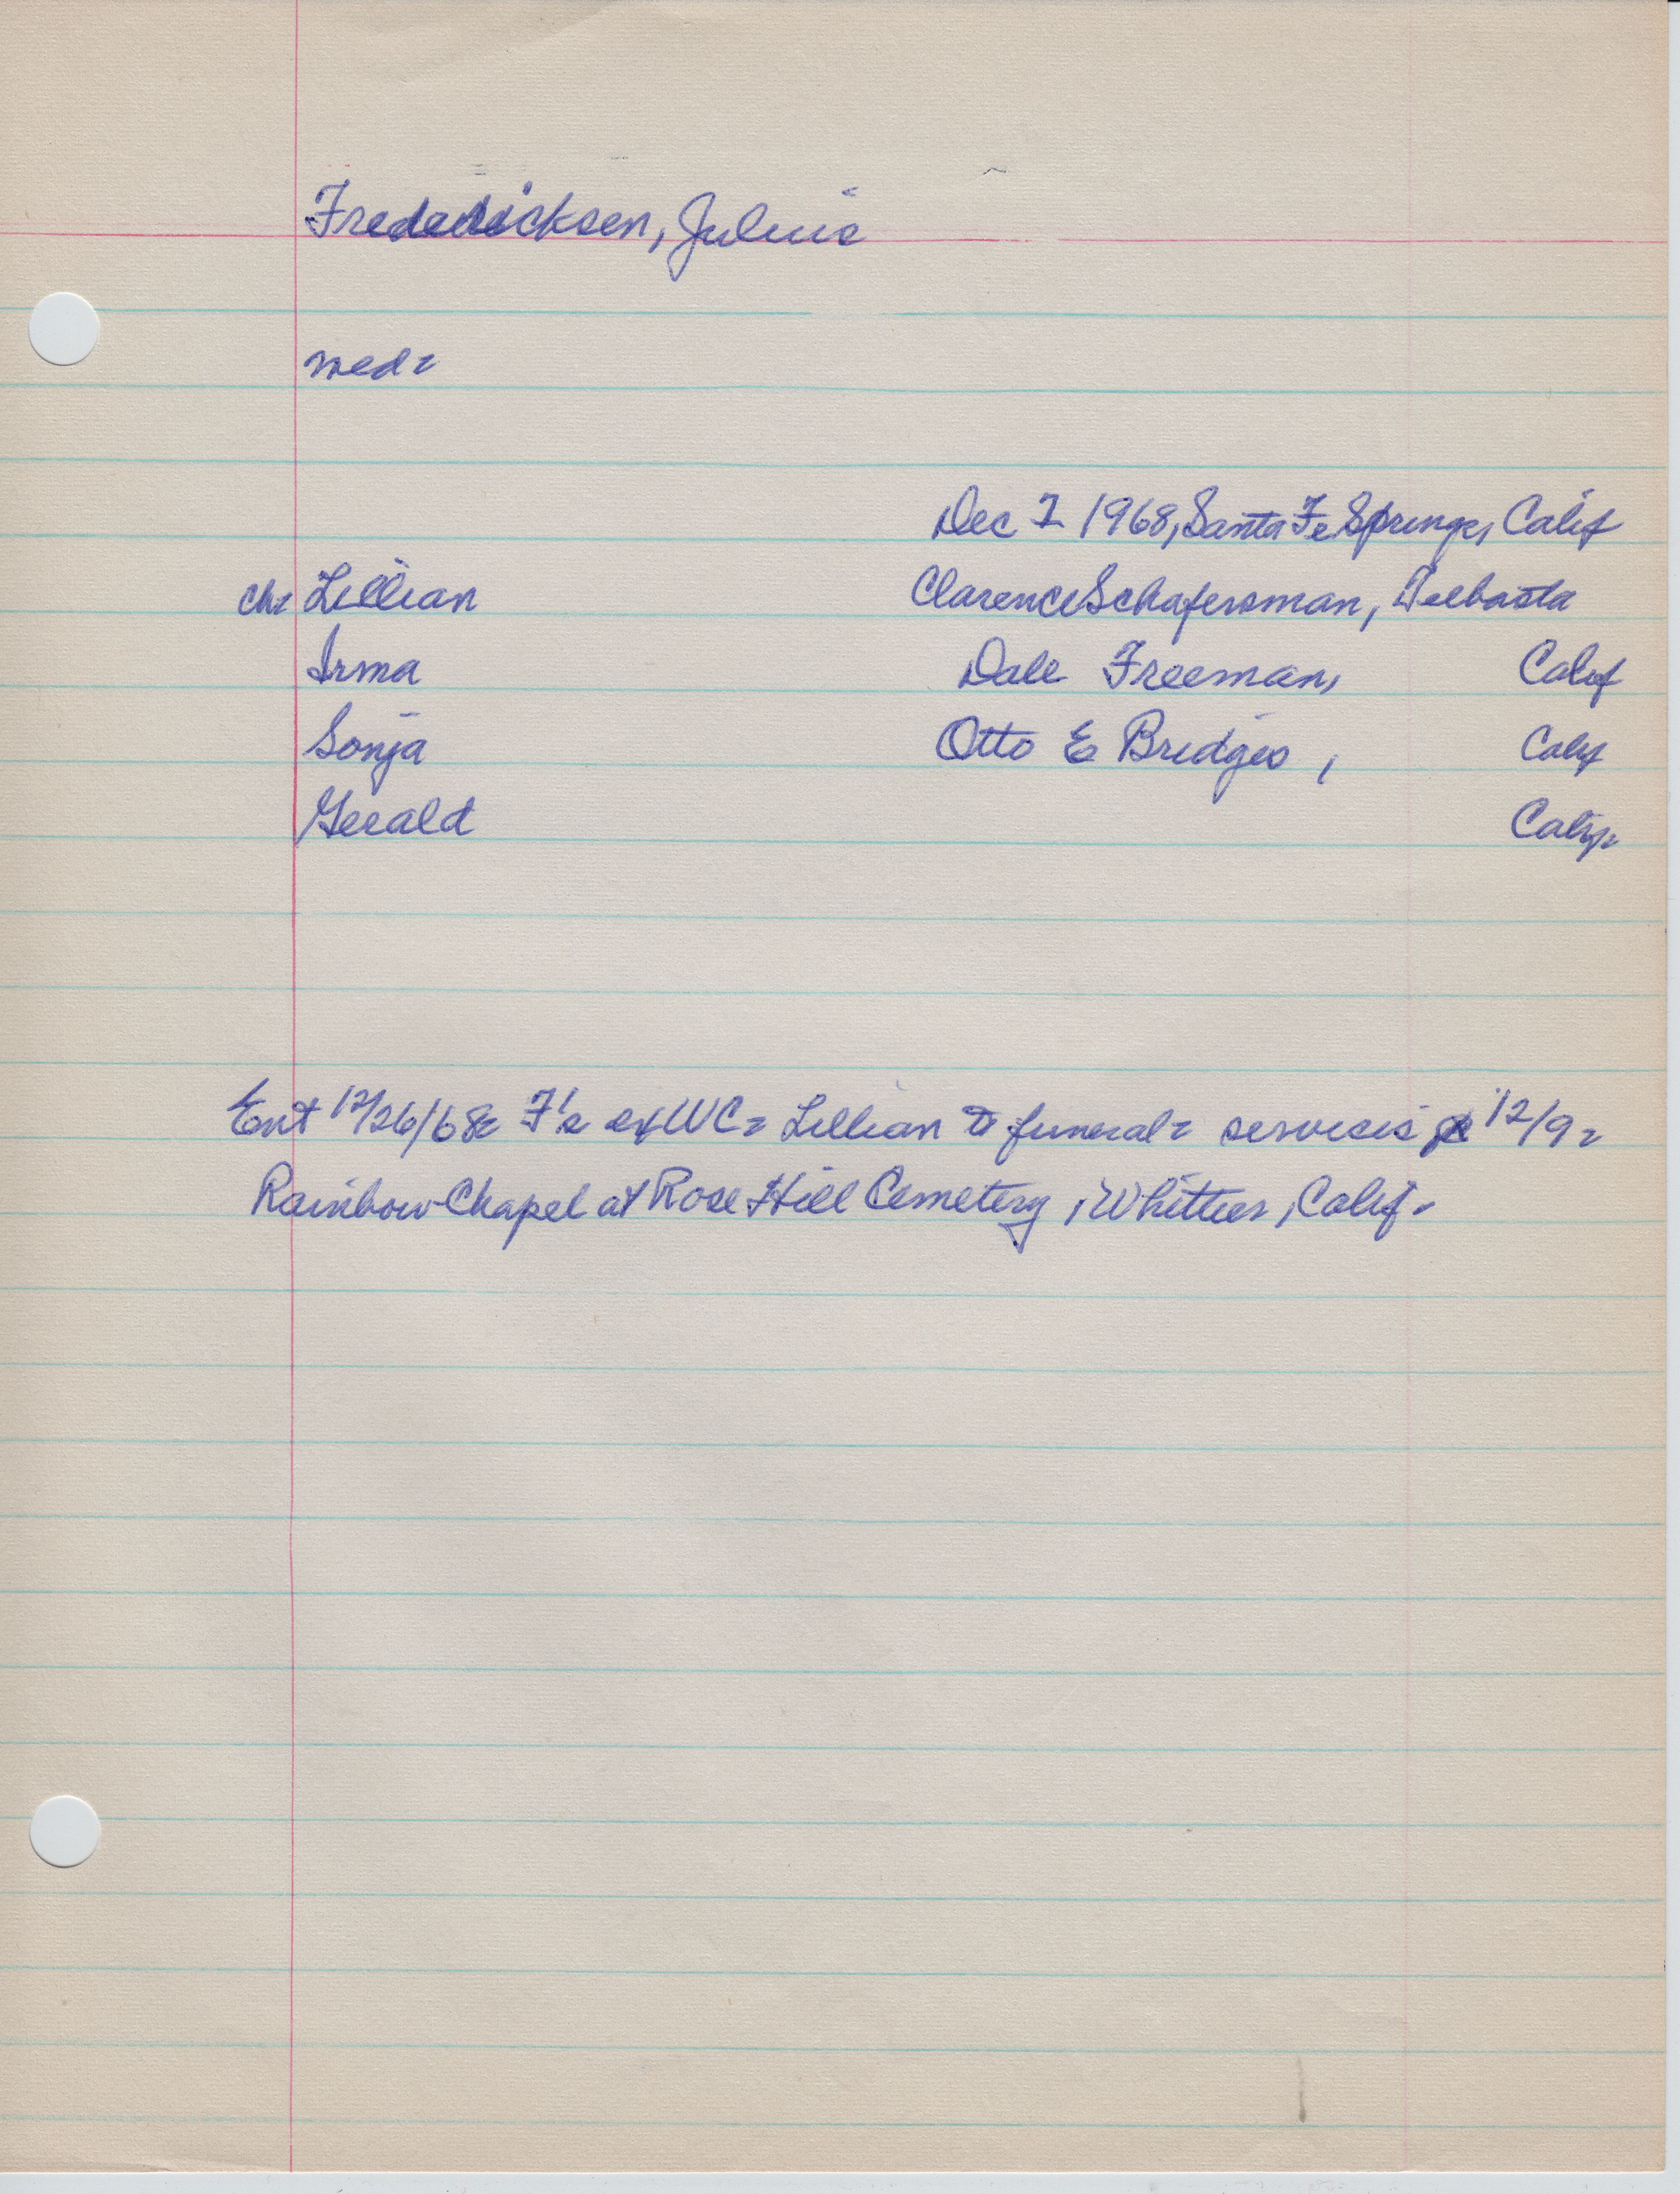 Fredericksen, Julius
wed-
Dec 7 1968, Santa Fe Springs, Calif
ch- Lillian Clarence Schafersman,
Irma Dale Freeman, Calif
Sonja Otto E Bridges, Calif
Gerald Calif-
Ent 12/26/68- F's of WC- Lillian to funeral- services 12/9-
Rainbow Chapel at Rose Hill Cemetery, Whittier, Calif-